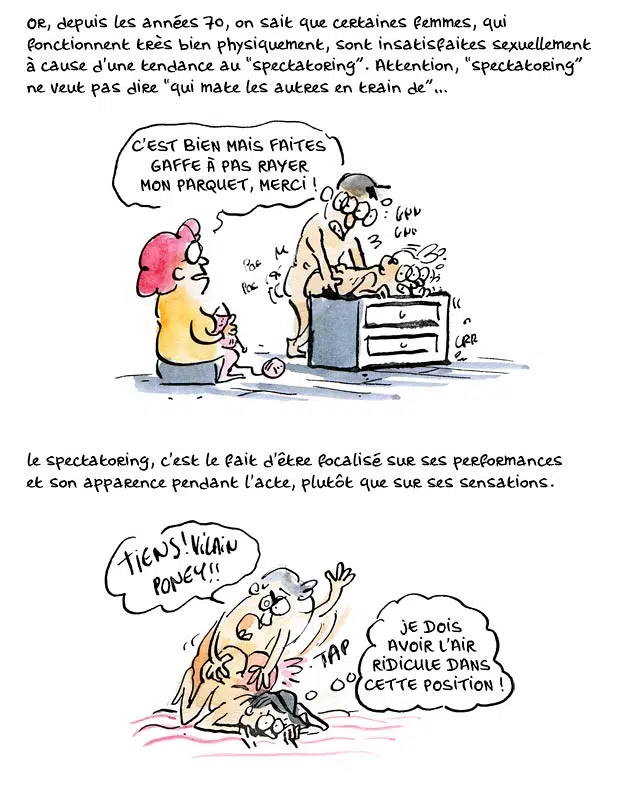 OR, depuis les années 70, on sait que certaines femmes, qui
fonctionnent très bien physiquement, sont insatisfaites sexuellement
à cause d'une tendance au "spectatoring". Attention, "spectatoring"
ne veut pas dire "qui mate les autres en train de"...
C'EST BIEN MAIS FAITES
GAFFE À PAS RAYER
MON PARQUET, MERCI !
GNN
GNN
CRR
le spectatoring, c'est le fait d'être focalisé sur ses performances
et son apparence pendant l'acte, plutôt que sur ses sensations.
TIENS! VILAIN
PONEY!!
TAP
JE DOIS
AVOIR L'AIR
RIDICULE DANS
CETTE POSITION !